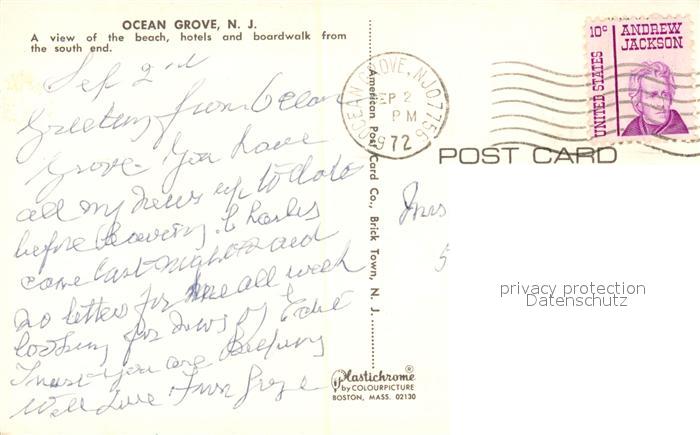 OCEAN GROVE, N. J.
A view of the beach, hotels and boardwalk from
the south end.
Sep 2nd
Greeting from Ocean
Grove You have
all my news up to date
before leaving Charles
came last night and
no letter for me all week
looking for news of
Trust you are feeling
Well Love from
American Post Card Co., Brick Town, N. J.
Plastichrome®
by COLOURPICTURE
BOSTON, MASS. 02130
OCEAN GROVE, NJ 07756
SEP 2
PM
1972
10c ANDREW
JACKSON
UNITED STATES
POST CARD
Mrs
5
privacy protection
Datenschutz